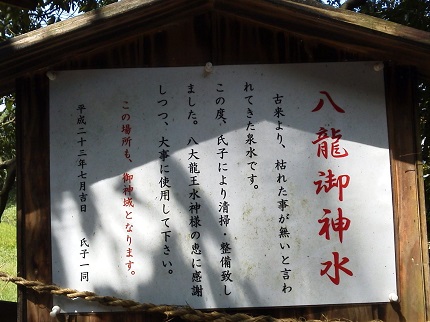 八龍御神水
古来より、枯れた事が無いと言わ
れてきた泉水です。
この度、氏子により清掃・整備致し
ました。八大龍王水神様の恵に感謝
しつつ、大事に使用して下さい。
この場所も、御神域となります。
平成二十三年七月吉日　氏子一同